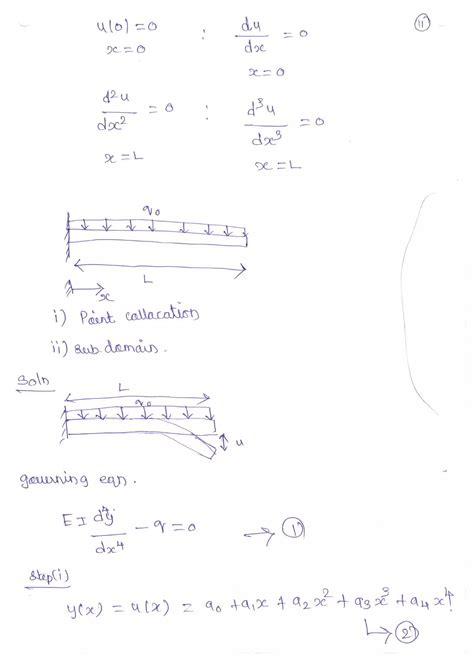 u(0) = 0 ; du/dx = 0 11
x = 0 x = 0
d²u/dx² = 0 ; d³u/dx³ = 0
x = L x = L
q₀
L
x
i) Point collacation
ii) sub domain.
Soln
L
q₀
u
governing eqn.
EI d⁴y/dx⁴ − q = 0 → 1
Step(i)
y(x) = u(x) = a₀ + a₁x + a₂x² + a₃x³ + a₄x⁴
→ 2